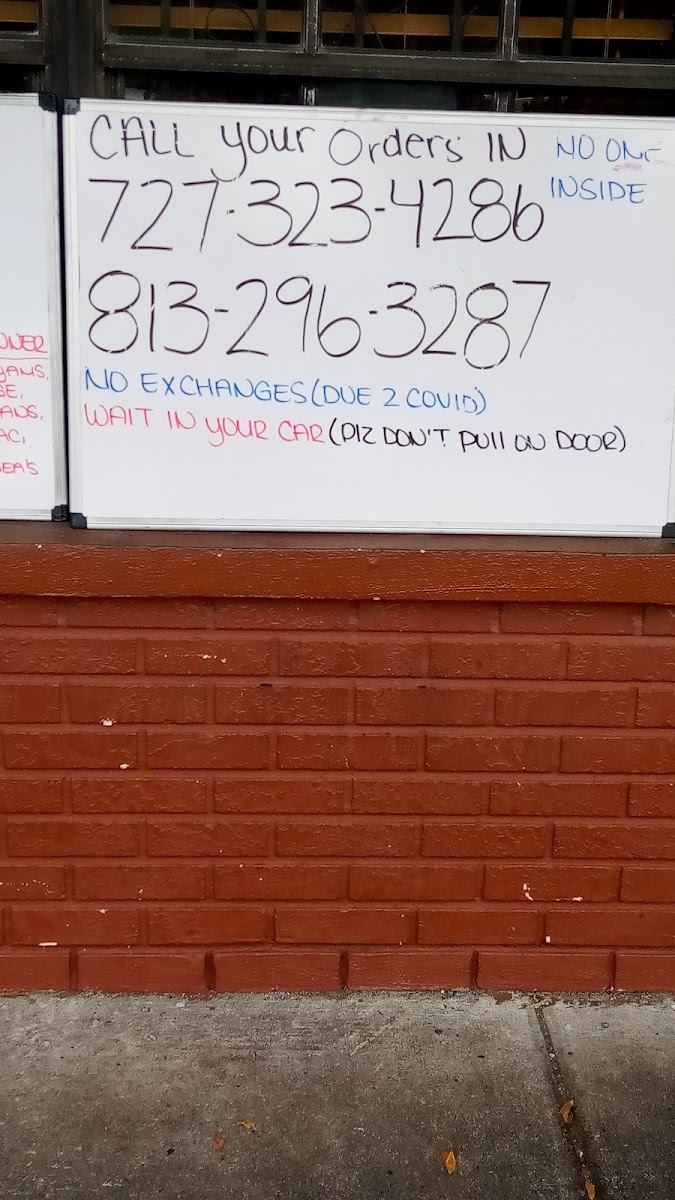 CALL your Orders IN
NO ONE
INSIDE
727-323-4286
813-296-3287
NO EXCHANGES (DUE 2 COVID)
WAIT IN YOUR CAR (PlZ DON'T PUll ON DOOR)
NNER
YAMS,
GE,
ANS,
AC,
EA'S